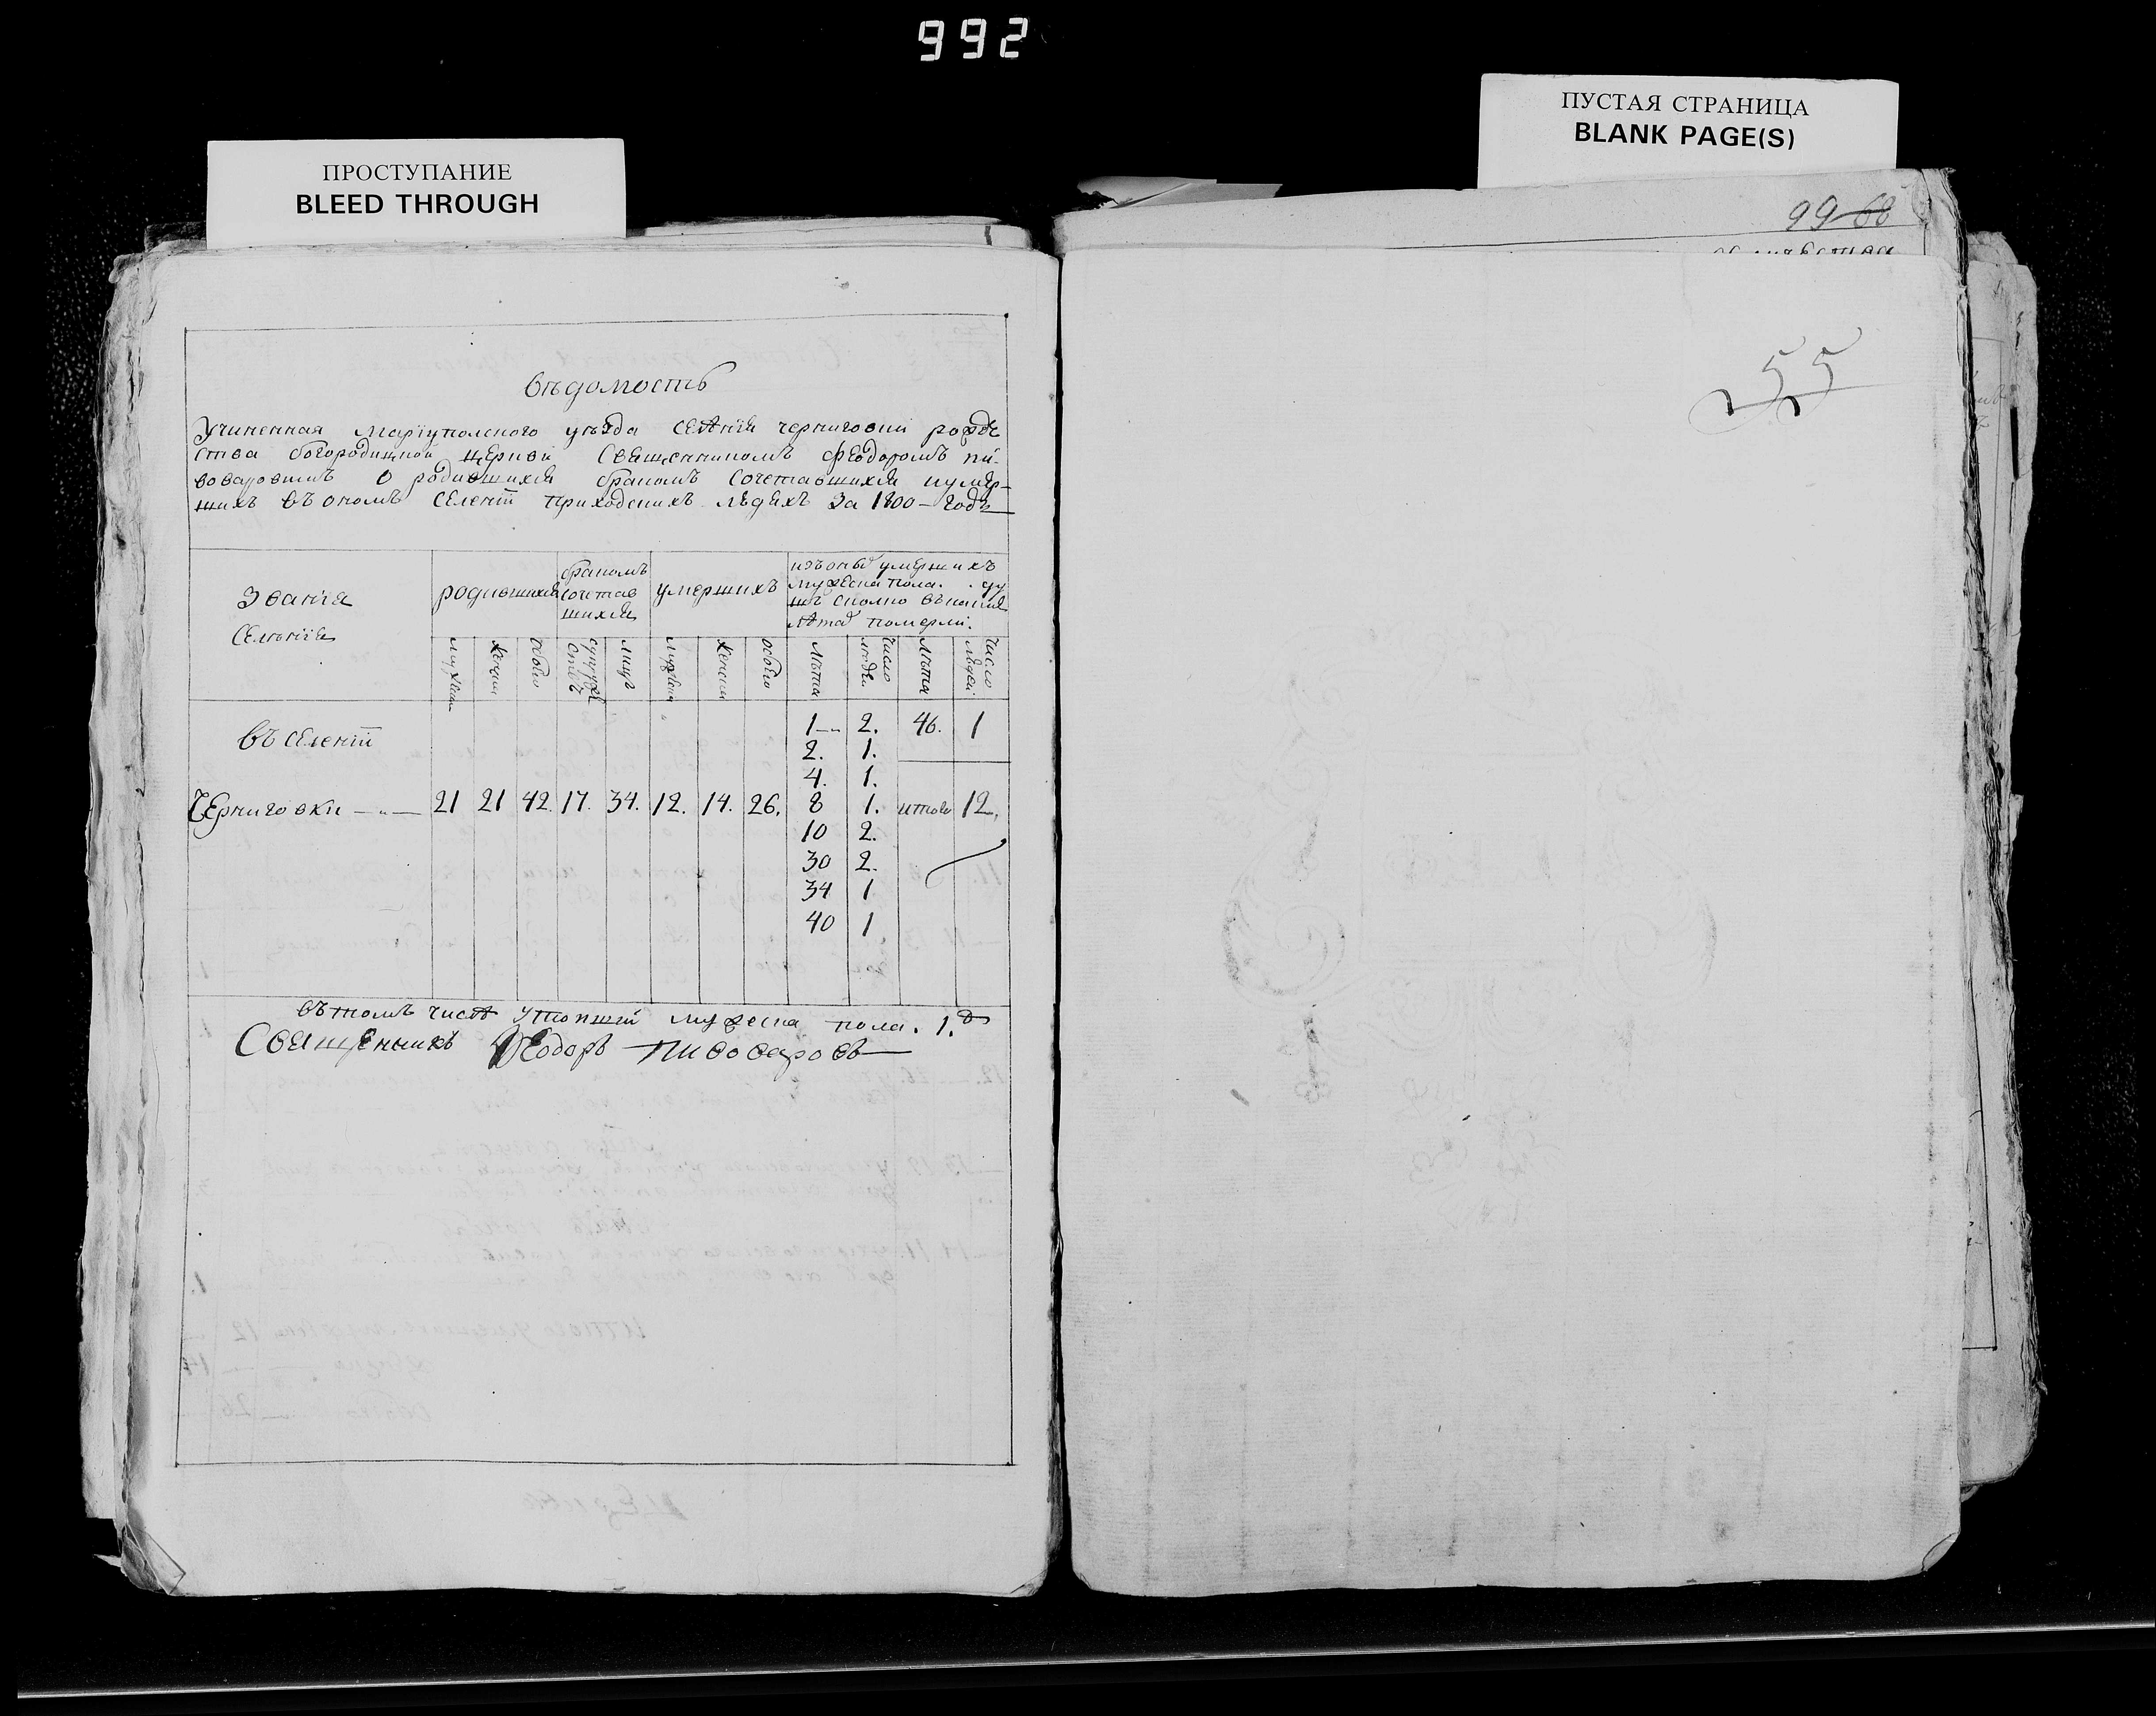 992
ПРОСТУПАНИЕ
BLEED THROUGH
ПУСТАЯ СТРАНИЦА
BLANK PAGE(S)
99 68
55
Вѣдомость
Учиненная Маріуполского уѣзда селенія Черниговки рожде
ства богородичной церкви Священникомъ Феодоромъ Пи-
воваровимъ о родившихся бракомъ сочетавшихся и умер-
шихъ въ ономъ селеніи приходскихъ людехъ За 1800 – годъ
Званія
Селенія
родившихся
бракомъ
сочетав
шихся
умершихъ
изъ оныхъ умершихъ
мужеска пола. ду
шъ сколко въ какия
лѣта померли.
мужеска
женска
обоего
супруже
ствъ
лицъ
мужеска
женска
обоего
лѣта
число
людей
лѣта
число
людей
въ селеніи
Черниговки – „ – 21 21 42. 17. 34. 12. 14. 26.
1 – „ 2. 46. 1
2. 1.
4. 1.
8 1. итого 12.
10 2.
30 2.
34 1
40 1
въ томъ числѣ утопшій мужеска пола. 1.
Священникъ Феодоръ Пивоваровъ